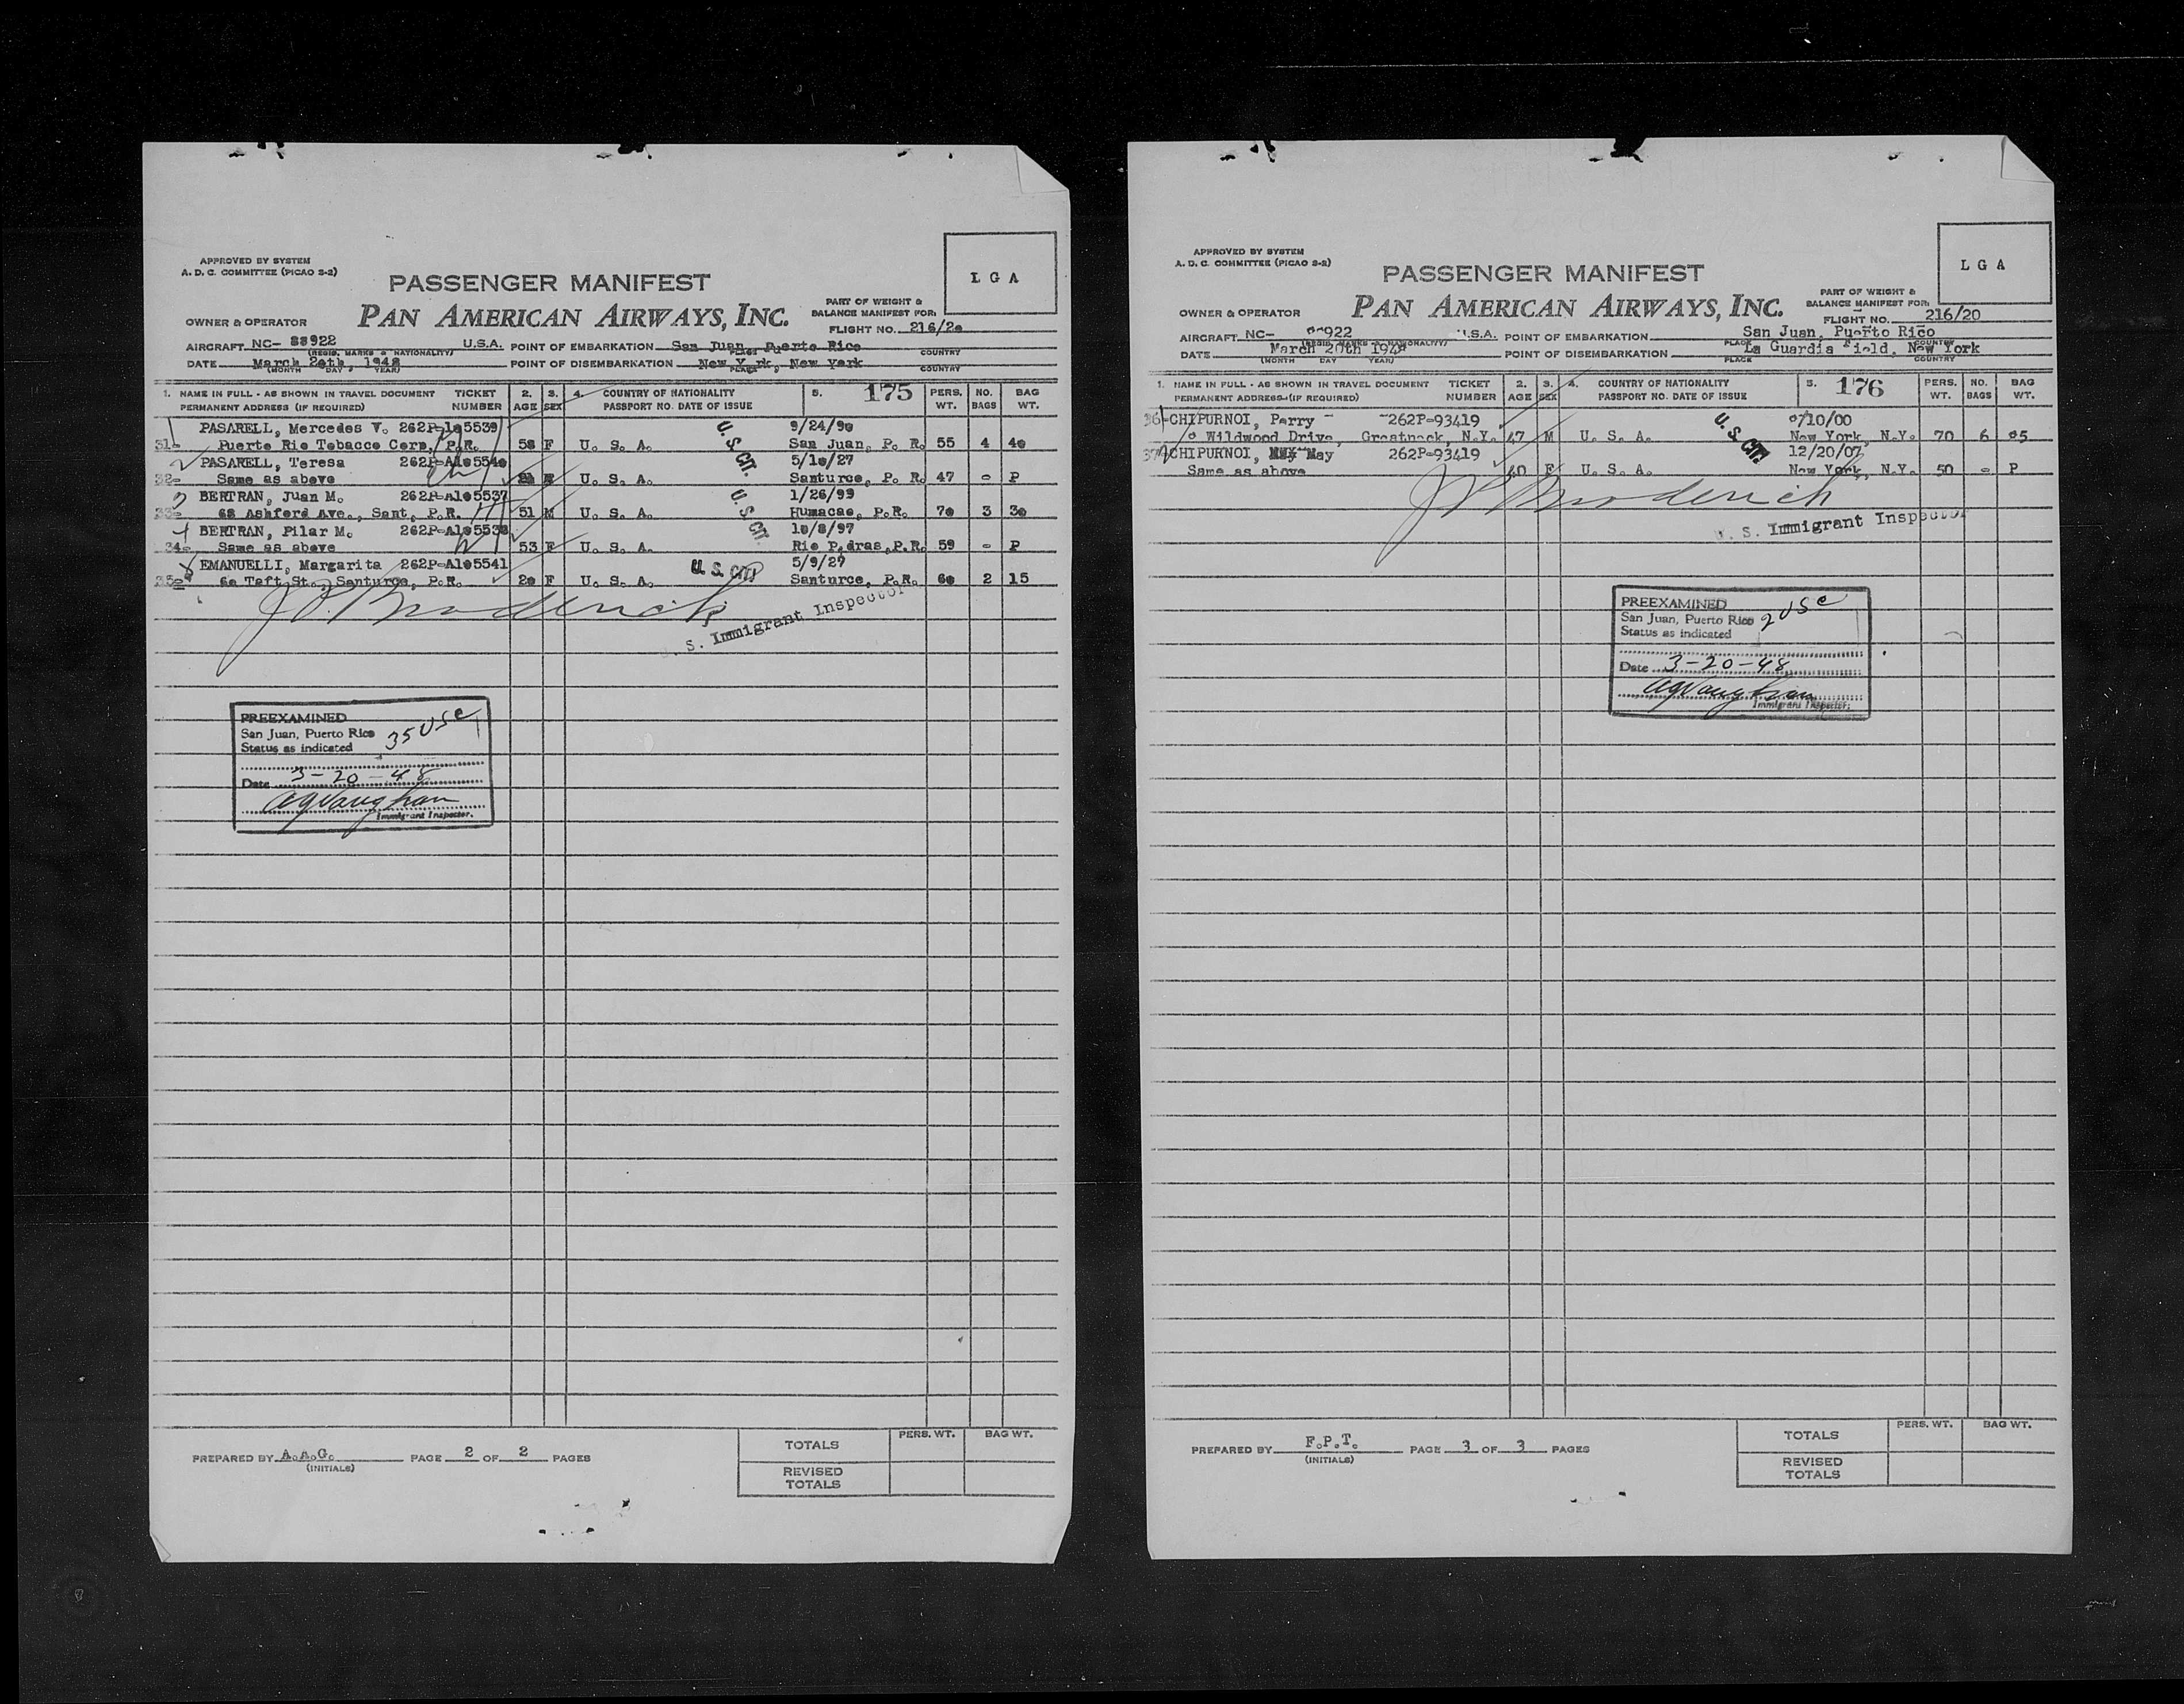 APPROVED BY SYSTEM
A. D. C. COMMITTEE (PICAO S-2)
L G A
PASSENGER MANIFEST
PAN AMERICAN AIRWAYS, INC.
PART OF WEIGHT &
BALANCE MANIFEST FOR:
FLIGHT NO. 216/20
OWNER & OPERATOR
AIRCRAFT NC- 88922 U.S.A. POINT OF EMBARKATION San Juan, Puerto Rico
(REGIS. MARKS & NATIONALITY) PLACE COUNTRY
DATE March 20th, 1948 POINT OF DISEMBARKATION New York, New York
(MONTH DAY YEAR) PLACE COUNTRY
1. NAME IN FULL - AS SHOWN IN TRAVEL DOCUMENT TICKET 2. 3. 4. COUNTRY OF NATIONALITY 5. 175 PERS. NO. BAG
PERMANENT ADDRESS (IF REQUIRED) NUMBER AGE SEX PASSPORT NO. DATE OF ISSUE WT. BAGS WT.
PASARELL, Mercedes V. 9/24/90
31- Puerto Rio Tobacco Corp, P.R. 58 F U. S. A. San Juan, P. R. 55 4 40
PASARELL, Teresa 262P-A105540 5/10/27
32- Same as above F U. S. A. Santurce, P. R. 47 - P
BERTRAN, Juan M. 262P-A105537 1/26/99
33- 68 Ashford Ave., Sant, P.R. 51 M U. S. A. Humacao, P.R. 70 3 30
BERTRAN, Pilar M. 262P-A105538 10/8/97
34- Same as above 53 F U. S. A. Rio Pedras, P.R. 59 - P
EMANUELLI, Margarita 262P-A105541 5/9/27
35- 60 Taft St., Santurce, P.R. 20 F U. S. A. Santurce, P.R. 60 2 15
U. S. CIT.
U. S. CIT.
U. S. CIT.
J P. Broderick
S. Immigrant Inspector
PREEXAMINED
San Juan, Puerto Rico
Status as indicated 35 USC
Date 3-20-48
Immigrant Inspector.
PREPARED BY A.A.G. PAGE 2 OF 2 PAGES
(INITIALS)
PERS. WT. BAG WT.
TOTALS
REVISED
TOTALS
APPROVED BY SYSTEM
A. D. C. COMMITTEE (PICAO S-2)
L G A
PASSENGER MANIFEST
PAN AMERICAN AIRWAYS, INC.
PART OF WEIGHT &
BALANCE MANIFEST FOR:
FLIGHT NO. 216/20
OWNER & OPERATOR
AIRCRAFT NC- 922 U.S.A. POINT OF EMBARKATION San Juan, Puerto Rico
(REGIS. MARKS & NATIONALITY) PLACE COUNTRY
DATE March 20th 1948 POINT OF DISEMBARKATION La Guardia Field, New York
(MONTH DAY YEAR) PLACE COUNTRY
1. NAME IN FULL - AS SHOWN IN TRAVEL DOCUMENT TICKET 2. 3. 4. COUNTRY OF NATIONALITY 5. 176 PERS. NO. BAG
PERMANENT ADDRESS (IF REQUIRED) NUMBER AGE SEX PASSPORT NO. DATE OF ISSUE WT. BAGS WT.
36- CHIPURNOI, Perry 262P-93419
Wildwood Drive, Greatneck, N.Y. 47 M U. S. A. New York, N.Y. 70 6
37- CHIPURNOI, May 262P-93419 12/20/07
Same as above 40 F U. S. A. New York, N.Y. 50 - P
U. S. CIT.
J P Broderick
S. Immigrant Inspector
PREEXAMINED
San Juan, Puerto Rico 2 USC
Status as indicated
Date 3-20-48
Immigrant Inspector.
PREPARED BY F.P.T. PAGE 3 OF 3 PAGES
(INITIALS)
PERS. WT. BAG WT.
TOTALS
REVISED
TOTALS